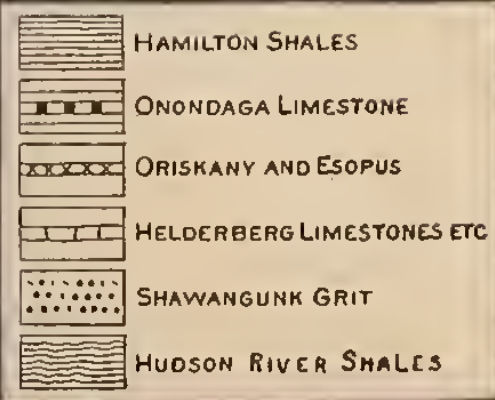 HAMILTON SHALES
ONONDAGA LIMESTONE
ORISKANY AND ESOPUS
HELDERBERG LIMESTONES ETC
SHAWANGUNK GRIT
HUDSON RIVER SHALES